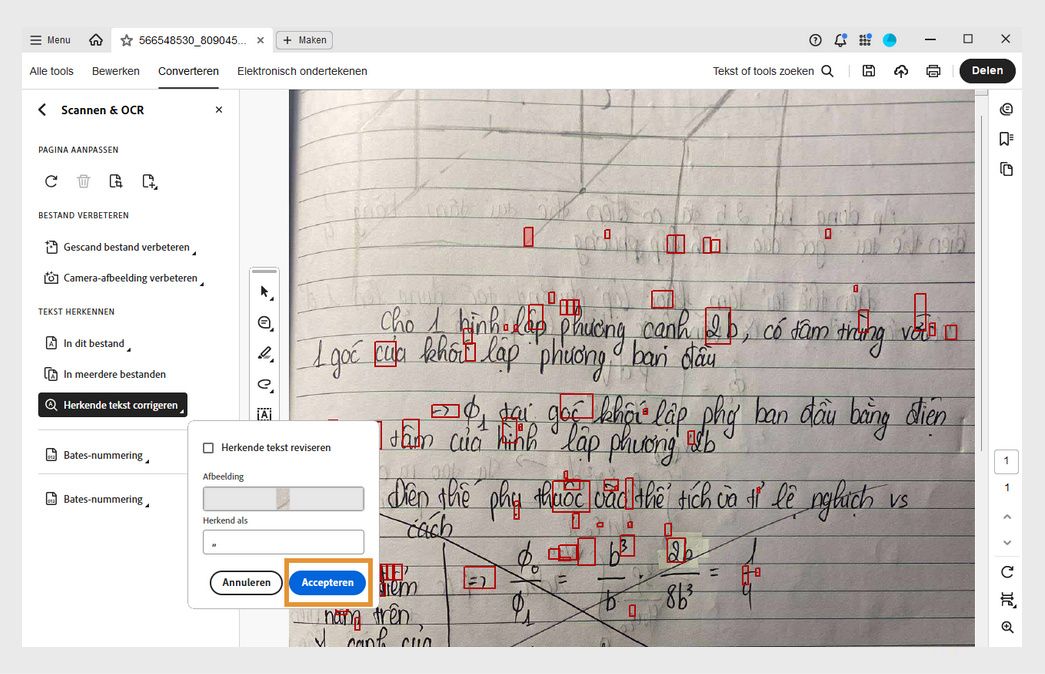 Menu
566548530_809045...
Maken
Alle tools
Bewerken
Converteren
Elektronisch ondertekenen
Tekst of tools zoeken
Delen
Scannen & OCR
PAGINA AANPASSEN
BESTAND VERBETEREN
Gescand bestand verbeteren
Camera-afbeelding verbeteren
TEKST HERKENNEN
In dit bestand
In meerdere bestanden
Herkende tekst corrigeren
Bates-nummering
Bates-nummering
Herkende tekst reviseren
Afbeelding
Herkend als
„
Annuleren
Accepteren
Cho 1 hình lập phương cạnh 2b, có tâm trùng với
1 góc của khối lập phương ban đầu
=> ϕ₁ tại góc khối lập phg ban đầu bằng điện
tâm của hình lập phương 2b
Điện thế phụ thuộc vào thể tích và tỉ lệ nghịch vs
cách
=> ϕ₀/ϕ₁ = b³/b · 2b/8b³ = 1/4
điểm
nằm trên
cạnh của
1
1